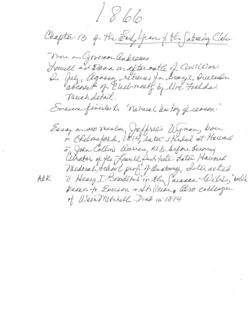 1866
Chapter 13 of the Early Years of the Saturday Club.
More on Governor Andrews
Lowell and Dana in aftermath of Civil War
In July, Agassiz returns from Brazil. Excellent
account of Club meeting by Mr. Fields
Much detail
Emerson finished his "natural history of reason."
Essay on new member, Jeffries Wyman, born
in Chelmsford, 1814, later studied at Harvard
c John Collins Warren, M.D. before becoming
Curator of the Lowell Institute. Later Harvard
Medical School prof. of Anatomy. Interacted
c Henry I. Bowditch in the Parkman-Webster
ABK
known to Emerson
of Weir Mitchell. Died in 1874